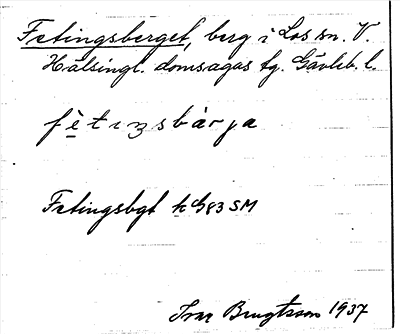 Fetingsberget, berg i Los sn. V.
Hälsingl. domsagas tg. Gävleb. l.
fètiŋsbàrja
Fetingsbgt k G83 SM
Ivar Bengtsson 1937